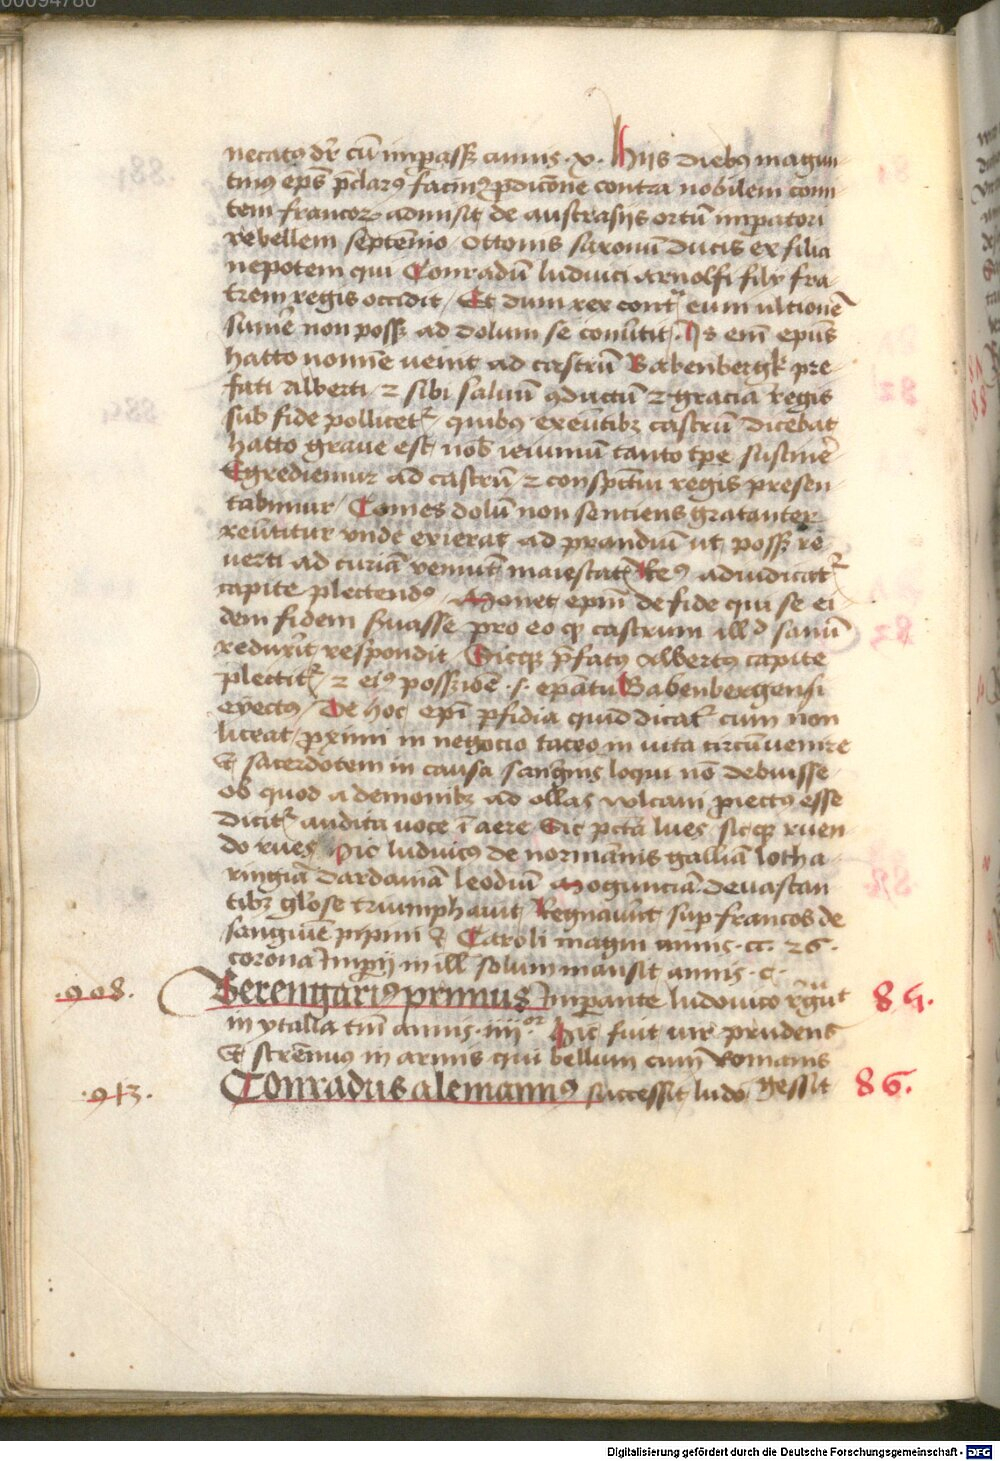 00094780
necatus dr̄ cū imp̄asset annis x. Hiis diebus magun
tinus ep̄s p̄clarus facinus p̄dicōne contra nobilem comi
tem francoꝝ admisit de austrasijs ortū imp̄atori
rebellem septēnio Ottonis saxonū ducis ex filia
nepotem qui Conradū ludwici Arnolfi filij fra
trem regis occidit Et dum rex contra eum ultionē
sumē non posset ad dolum se conu̇tit. Is em̄ ep̄us
hatto nomīe uenit ad castrū Babenbergk pre
fati Alberti ⁊ sibi saluū ꝯductū ⁊ gracia regis
sub fide pollicetr quibus exeūtibꝫ castrū dicebat
hatto graue est nob̄ ieiunium tanto tp̄e sustinē
Egrediemur ad castrū ⁊ conspectui regis presen
tabimur Comes dolū non senciens gratanter
reūtitur vnde exierat ad prandiū ut posset re
uerti ad curiā veniūt maiestatis Reus adiudicatr
capite plectendus Monet ep̄m de fide qui se ei
dem fidem suasse pro eo qꝫ castrum illd sanū
reduxit respondit Sicqꝫ p̄fatus Albertus capite
plectitr ⁊ eius possessioē .s. ep̄atu Babenbergensi
eyectus De hoc ep̄i p̄fidia quid dicatr cum non
liceat proximi in negocio taceo in uita circūuenire
Et sacerdotem in causa sanguinis loqui nō debuisse
ob quod a demonibꝫ ad ollas vulcani proiectus esse
dicitr audita uoce ī aere Sic pctā lues sicqꝫ ruen
do rues Hic ludwicus de normānis galliā lotha
ringiā Dardaniā leodiū Mogunciā deuastan
tibꝫ glōse triumphauit Regnauit sup francos de
sanguīe pipini ⁊ Caroli magni annis .cc. 26.
corona Imp̄ij in ill solum mansit annis .c.
.908. Berengarius primus Imperante ludouico rēgūt 85.
in ytalia tm̄ annis .iiijor Hic fuit vir prudens
Et strēnuus in armis qui bellum cum Romanis
.913. Conradus alemannus successit ludō gessit 86.
Digitalisierung gefördert durch die Deutsche Forschungsgemeinschaft - DFG